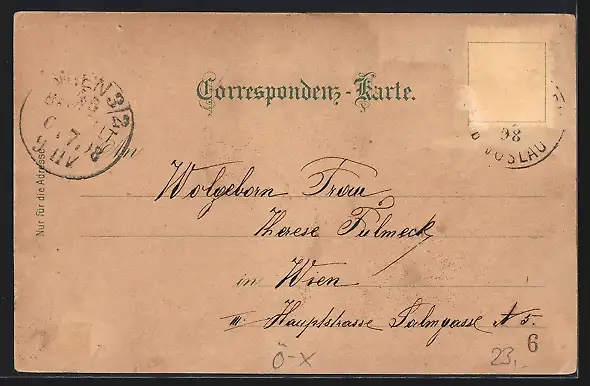 Correspondenz-Karte.
WIEN 3/2
98
VÖSLAU
An
Nur für die Adresse
Wolgeborn Frau
Therese Fülmeck
in Wien
III. Hauptstrasse Salmgasse N 5.
6
Ö-X
23,-